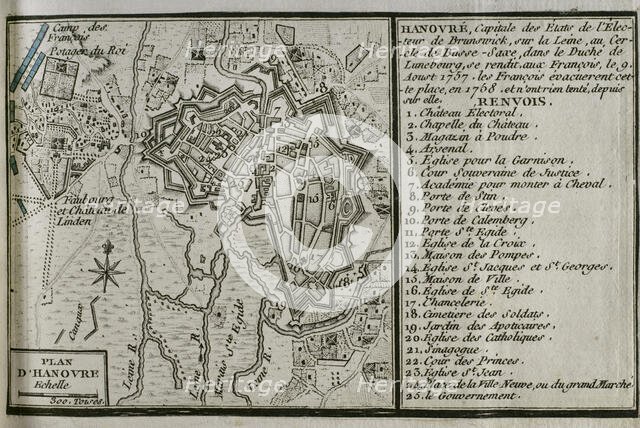 Camp des
François
Potager du Roi
Faubourg
et Château de
Linden
Leine R.
Leine R.
Ruisseau Ste Egide
Leine R.
PLAN
D'HANOVRE
Echelle
300. Toises.
HANOVRE, Capitale des Etats de l'Elec-
teur de Brunswick, sur la Leine, au Cer-
cle de Basse-Saxe, dans le Duché de
Lunebourg, se rendit aux François, le 9.
Aoust 1757. les François évacuerent cet-
te place, en 1758. et n'ont rien tenté, depuis
sur elle.
RENVOIS.
1. Château Electoral.
2. Chapelle du Château.
3. Magazin à Poudre.
4. Arsenal.
5. Eglise pour la Garnison.
6. Cour Souveraine de Justice.
7. Académie pour monter à Cheval.
8. Porte de Stin.
9. Porte de Clever.
10. Porte de Calemberg.
11. Porte Ste Egide.
12. Eglise de la Croix.
13. Maison des Pompes.
14. Eglise St Jacques et St Georges.
15. Maison de Ville.
16. Eglise de Ste Egide.
17. Chancelerie.
18. Cimetiere des Soldats.
19. Jardin des Apoticaires.
20. Eglise des Catholiques.
21. Sinagogue.
22. Cour des Princes.
23. Eglise St Jean.
24. Place de la Ville Neuve, ou du grand Marché
25. le Gouvernement.